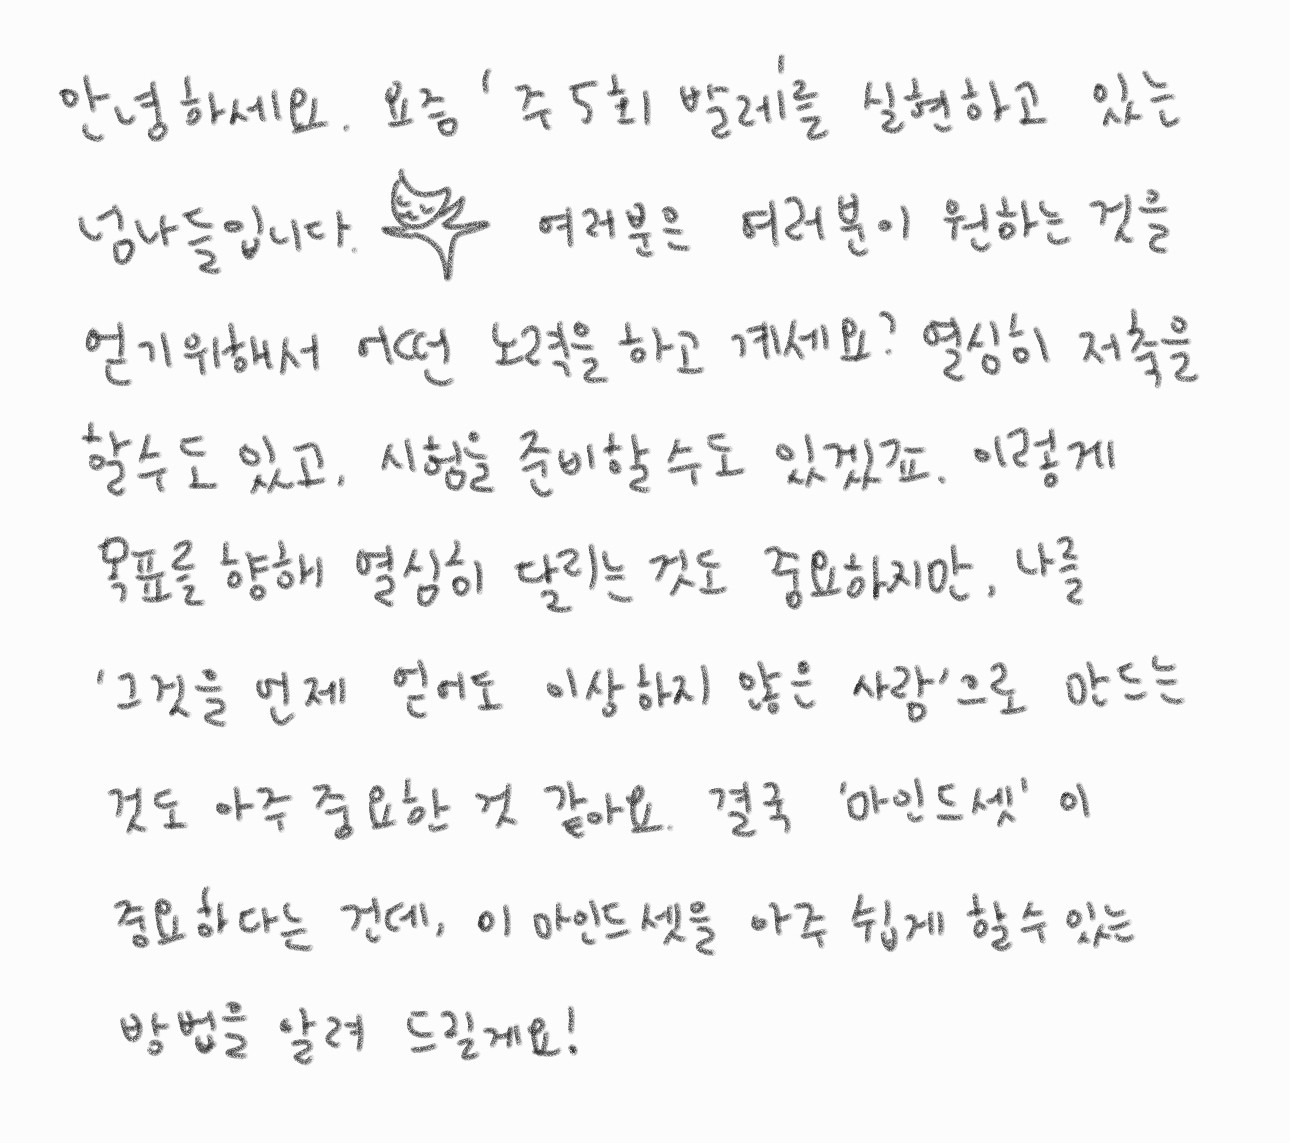 안녕하세요. 요즘 '주5회 발레'를 실현하고 있는
넘나들입니다. 여러분은 여러분이 원하는 것을
얻기위해서 어떤 노력을 하고 계세요? 열심히 저축을
할수도 있고, 시험을 준비할 수도 있겠죠. 이렇게
목표를 향해 열심히 달리는 것도 중요하지만, 나를
'그것을 언제 얻어도 이상하지 않은 사람'으로 만드는
것도 아주 중요한 것 같아요. 결국 '마인드셋'이
중요하다는 건데, 이 마인드셋을 아주 쉽게 할수 있는
방법을 알려 드릴게요!